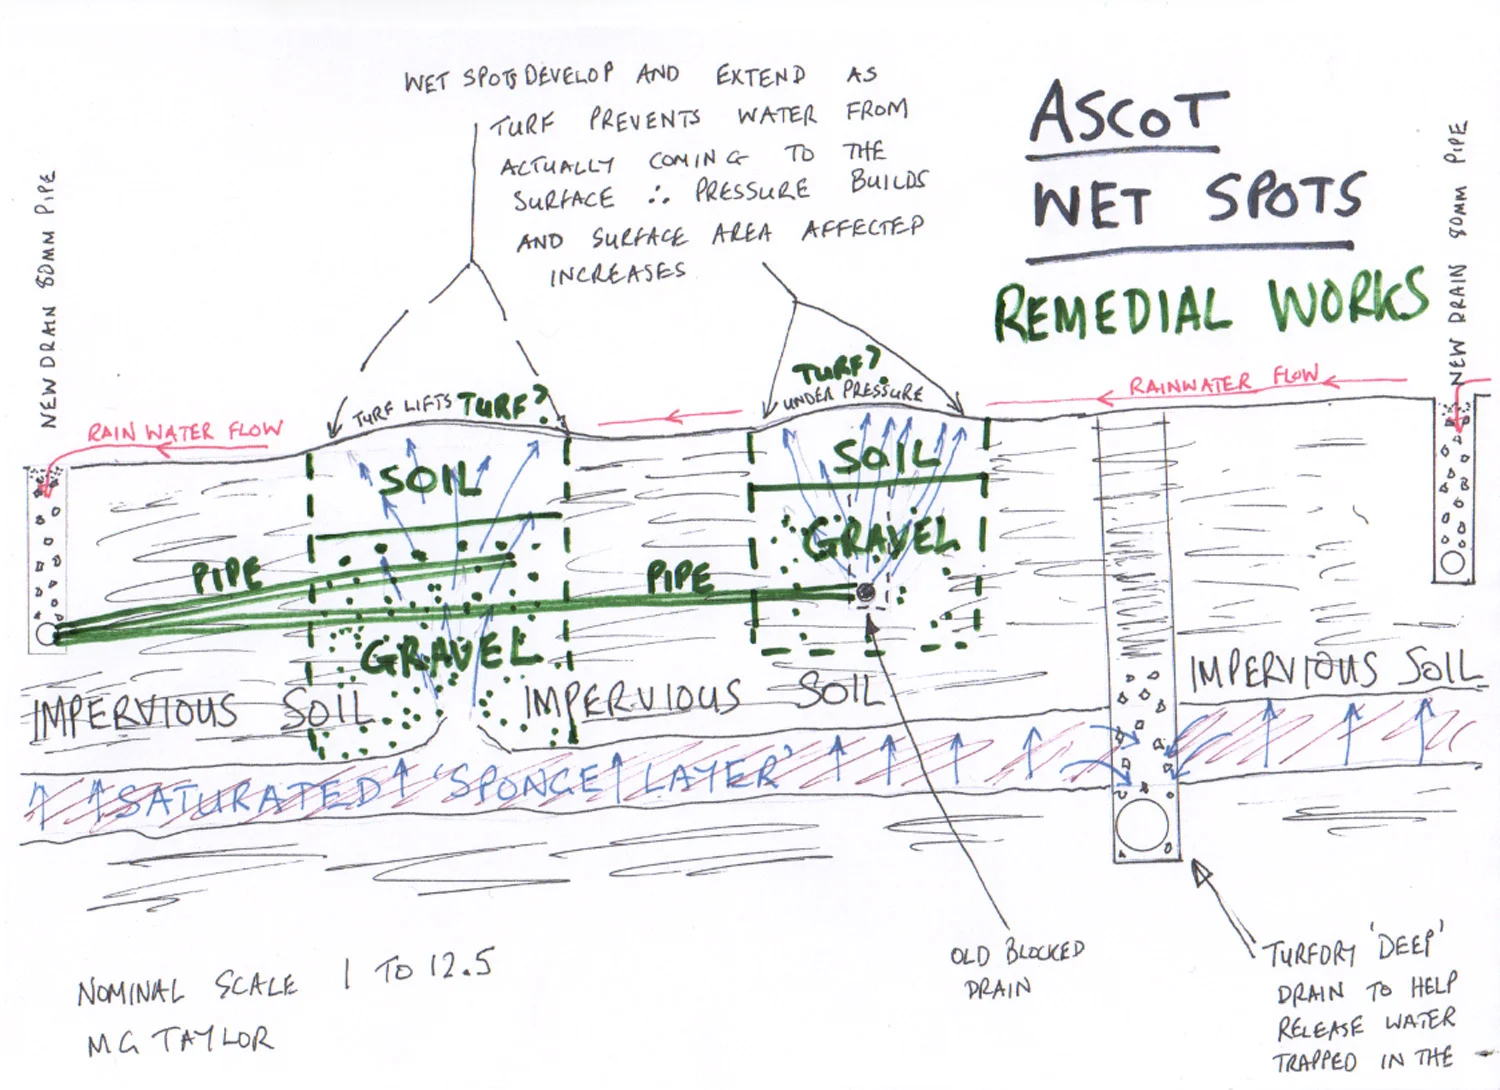 WET SPOTS DEVELOP AND EXTEND AS
TURF PREVENTS WATER FROM
ACTUALLY COMING TO THE
SURFACE ∴ PRESSURE BUILDS
AND SURFACE AREA AFFECTED
INCREASES
ASCOT
WET SPOTS
REMEDIAL WORKS
NEW DRAIN 80MM PIPE
NEW DRAIN 80MM PIPE
RAIN WATER FLOW
TURF LIFTS TURF?
TURF?
UNDER PRESSURE
RAINWATER FLOW
SOIL
SOIL
GRAVEL
PIPE
PIPE
GRAVEL
IMPERVIOUS SOIL
IMPERVIOUS SOIL
IMPERVIOUS SOIL
SATURATED 'SPONGE LAYER'
OLD BLOCKED
DRAIN
TURFDRY 'DEEP'
DRAIN TO HELP
RELEASE WATER
TRAPPED IN THE -
NOMINAL SCALE 1 TO 12.5
MG TAYLOR